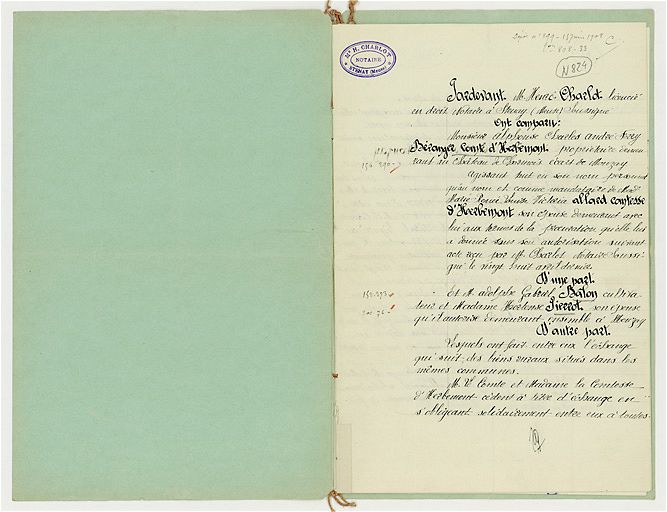 Mᵉ H. CHARLOT
NOTAIRE
STENAY (Meuse)
N 824
Pardevant Mᵉ Henri Charlot licencié
en droit Notaire à Stenay (Meuse) Soussigné
Ont comparu:
Monsieur Alphonse Charles André
Béranger Comte d'Herbemont propriétaire demeu
rant au Château de Charmois écart de Mouzay
agissant tant en son nom personnel
qu'au nom et comme mandataire de Mad
Marie Louise Victoria Allard comtesse
d'Herbemont son épouse demeurant avec
lui aux termes de la procuration qu'elle lui
a donnée sous son autorisation suivant
acte reçu par Mᵉ Charlot Notaire soussi
gné le vingt huit avril dernier
D'une part.
Et M. Adolphe Gabriel Balon cultiva
teur et Madame Hortense Pierrot son épouse
qu'il autorise demeurant ensemble à Mouzay
D'autre part.
Lesquels ont fait entre eux l'échange
qui suit des biens ruraux situés dans les
mêmes communes.
M. le Comte et Madame la Comtesse
d'Herbemont cèdent à titre d'échange en
s'obligeant solidairement entre eux à toutes